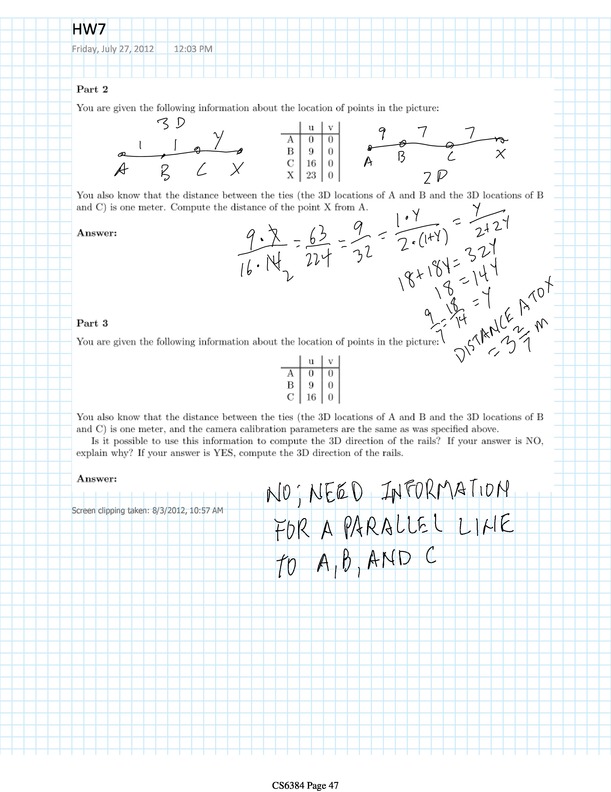 HW7
Friday, July 27, 2012 12:03 PM
Part 2
You are given the following information about the location of points in the picture:
3D
1 1 Y
A B C X
u v
A 0 0
B 9 0
C 16 0
X 23 0
9 7 7
A B C X
2D
You also know that the distance between the ties (the 3D locations of A and B and the 3D locations of B
and C) is one meter. Compute the distance of the point X from A.
Answer:
9·7/16·14 2 = 63/224 = 9/32 = 1·Y/2·(1+Y) = Y/2+2Y
18+18Y=32Y
18=14Y
9/7=18/14=Y
DISTANCE A TO X
= 3 2/7 M
Part 3
You are given the following information about the location of points in the picture:
u v
A 0 0
B 9 0
C 16 0
You also know that the distance between the ties (the 3D locations of A and B and the 3D locations of B
and C) is one meter, and the camera calibration parameters are the same as was specified above.
Is it possible to use this information to compute the 3D direction of the rails? If your answer is NO,
explain why? If your answer is YES, compute the 3D direction of the rails.
Answer:
NO; NEED INFORMATION
FOR A PARALLEL LINE
TO A, B, AND C
Screen clipping taken: 8/3/2012, 10:57 AM
CS6384 Page 47